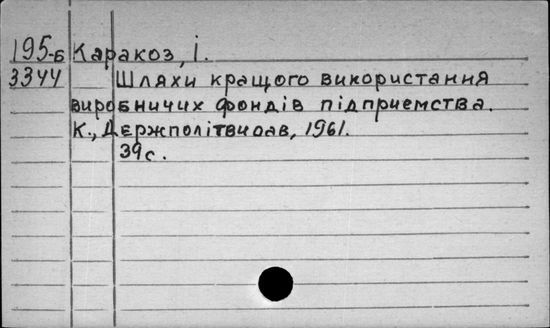 195-Б Каракоз, І.
3344 Шляхи кращого використання
виробничих фондів підприємства.
К., Держполітвидав, 1961.
39с.